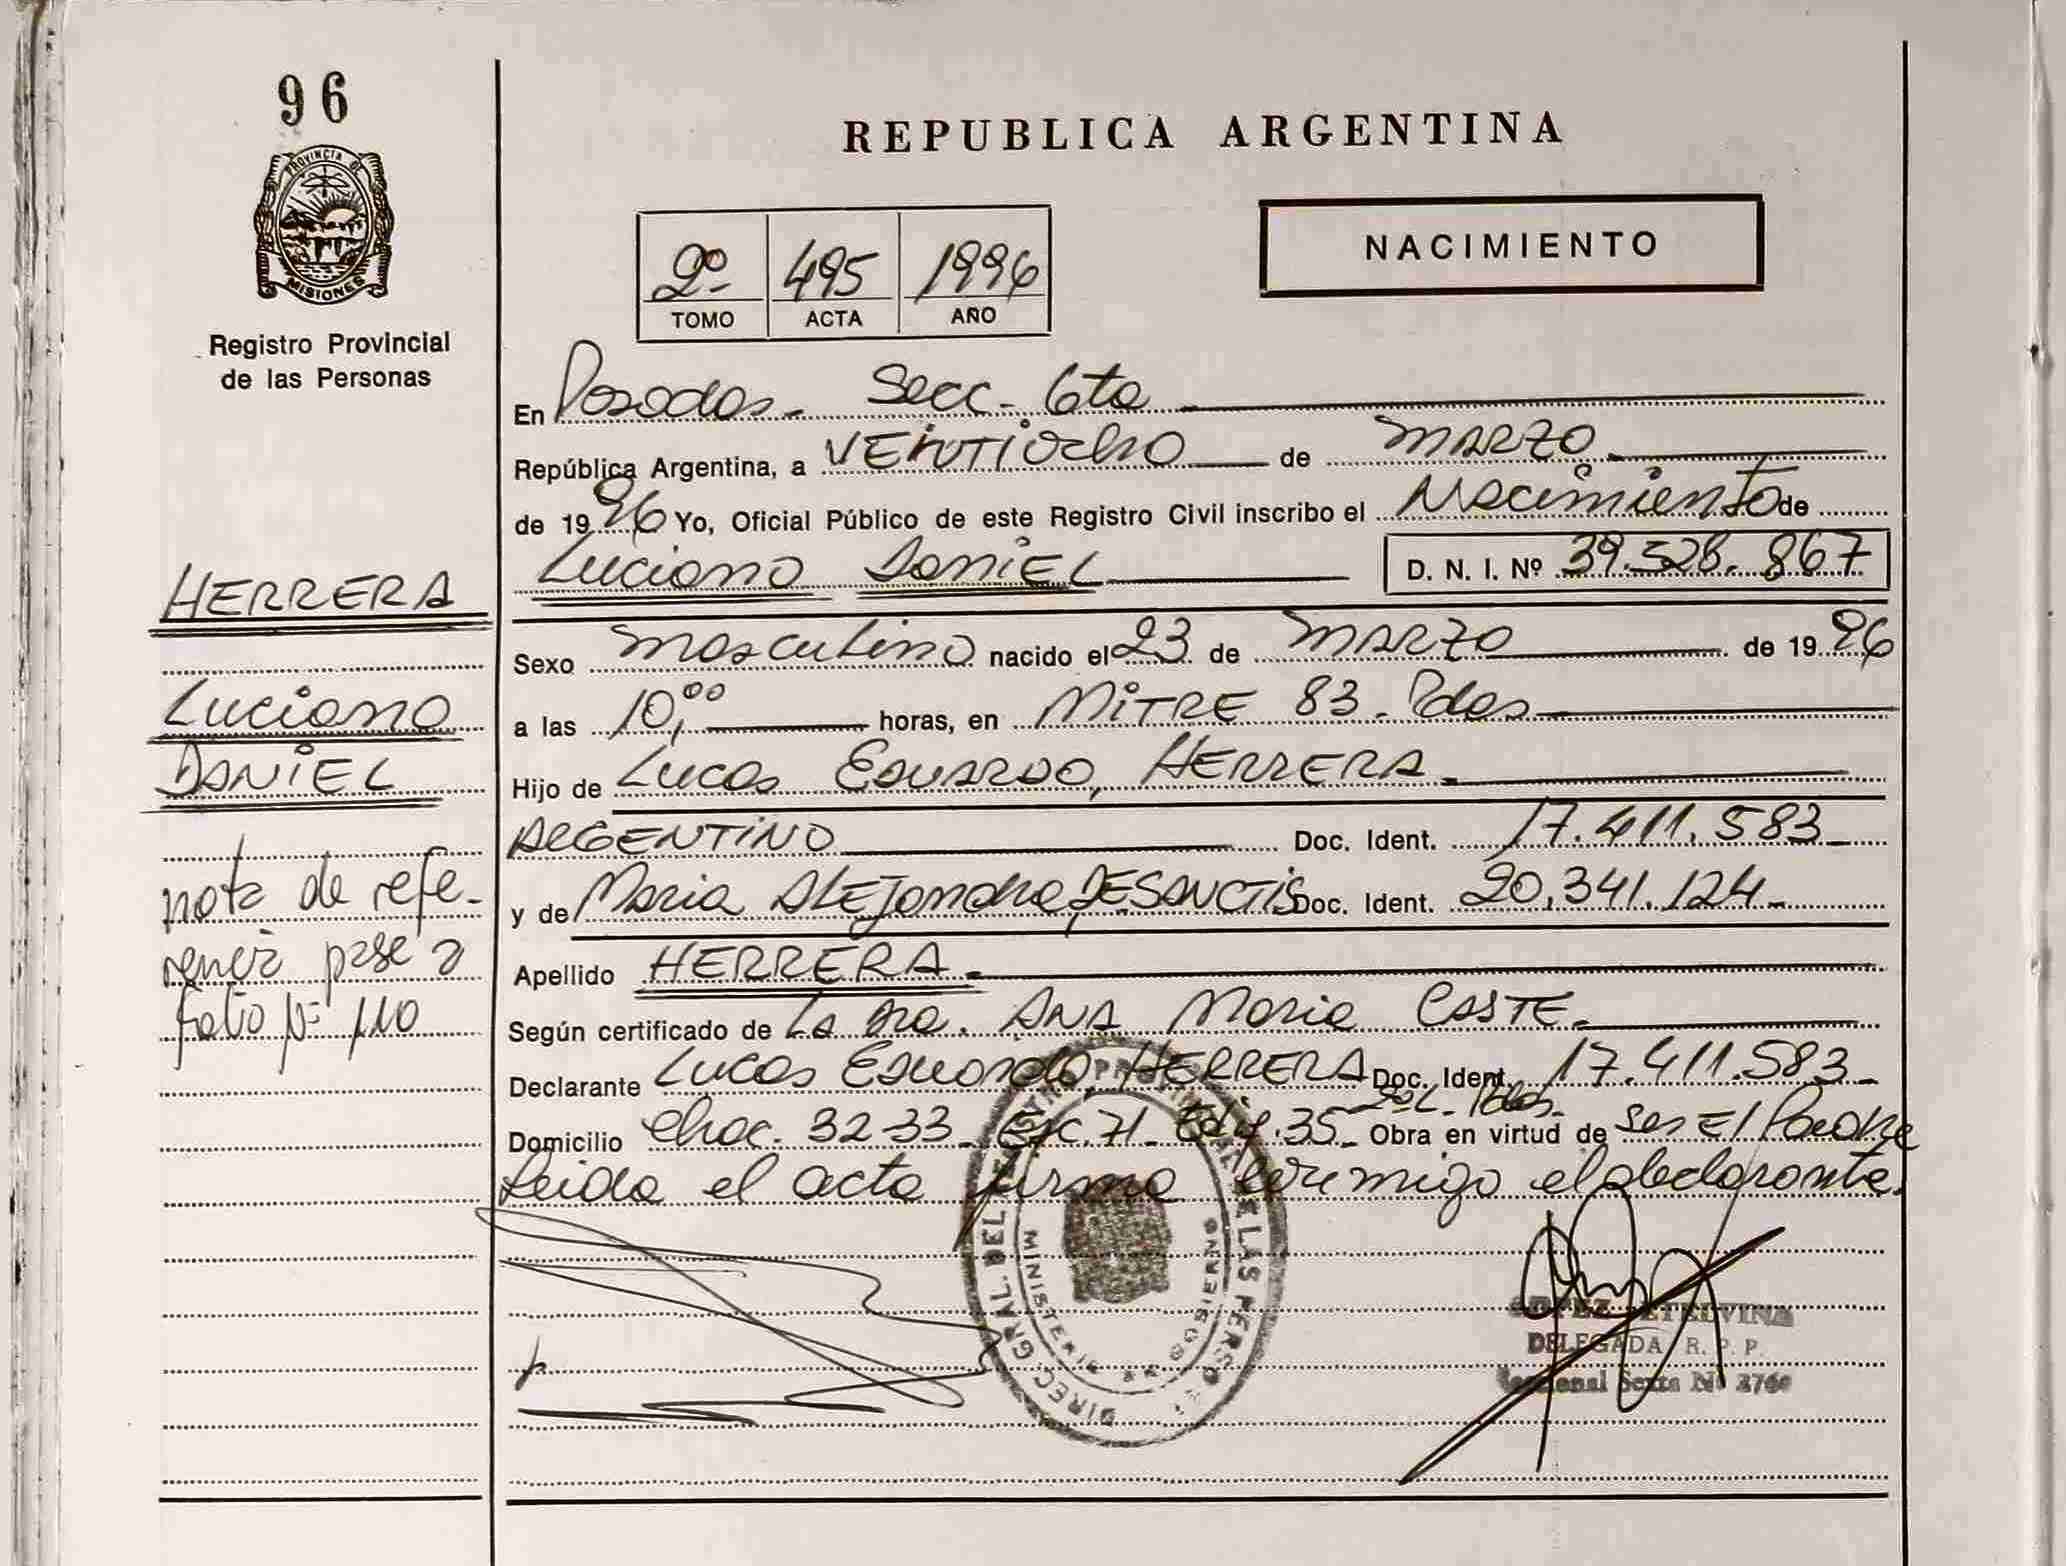 96
PROVINCIA DE
MISIONES
Registro Provincial
de las Personas
HERRERA
Luciano
DANIEL
nota de refe-
rencia pase a
folio Nº 110
REPUBLICA ARGENTINA
2º 495 1996
TOMO ACTA AÑO
NACIMIENTO
En Posadas. Secc. 6ta
República Argentina, a VEINTIOcho de MARZO
de 1996 Yo, Oficial Público de este Registro Civil inscribo el Nacimiento de
Luciano DANIEL D. N. I. Nº 39.528.867
Sexo masculino nacido el 23 de MARZO de 1996
a las 10,00 horas, en MiTRE 83. Pdas
Hijo de Lucas EDUARDO, HERRERA.
ARGENTINO Doc. Ident. 17.411.583
y de Maria ALEJandra, DESANCTIS Doc. Ident. 20.341.124
Apellido HERRERA.
Según certificado de La Dra. ANA Maria CASTE.
Declarante Lucas Eduardo, HERRERA Doc. Ident. 17.411.583
Domicilio Chac. 32-33 Esc. 71 Edif. 35 Pdas. Obra en virtud de ser El Padre
Leida el acta firma conmigo el declarante.
DIREC. GRAL. DEL REGISTRO PROVINCIAL DE LAS PERSONAS
MINISTERIO DE GOBIERNO
LOPEZ ETELVINA
DELEGADA R. P. P.
Seccional Sexta Nº 2760